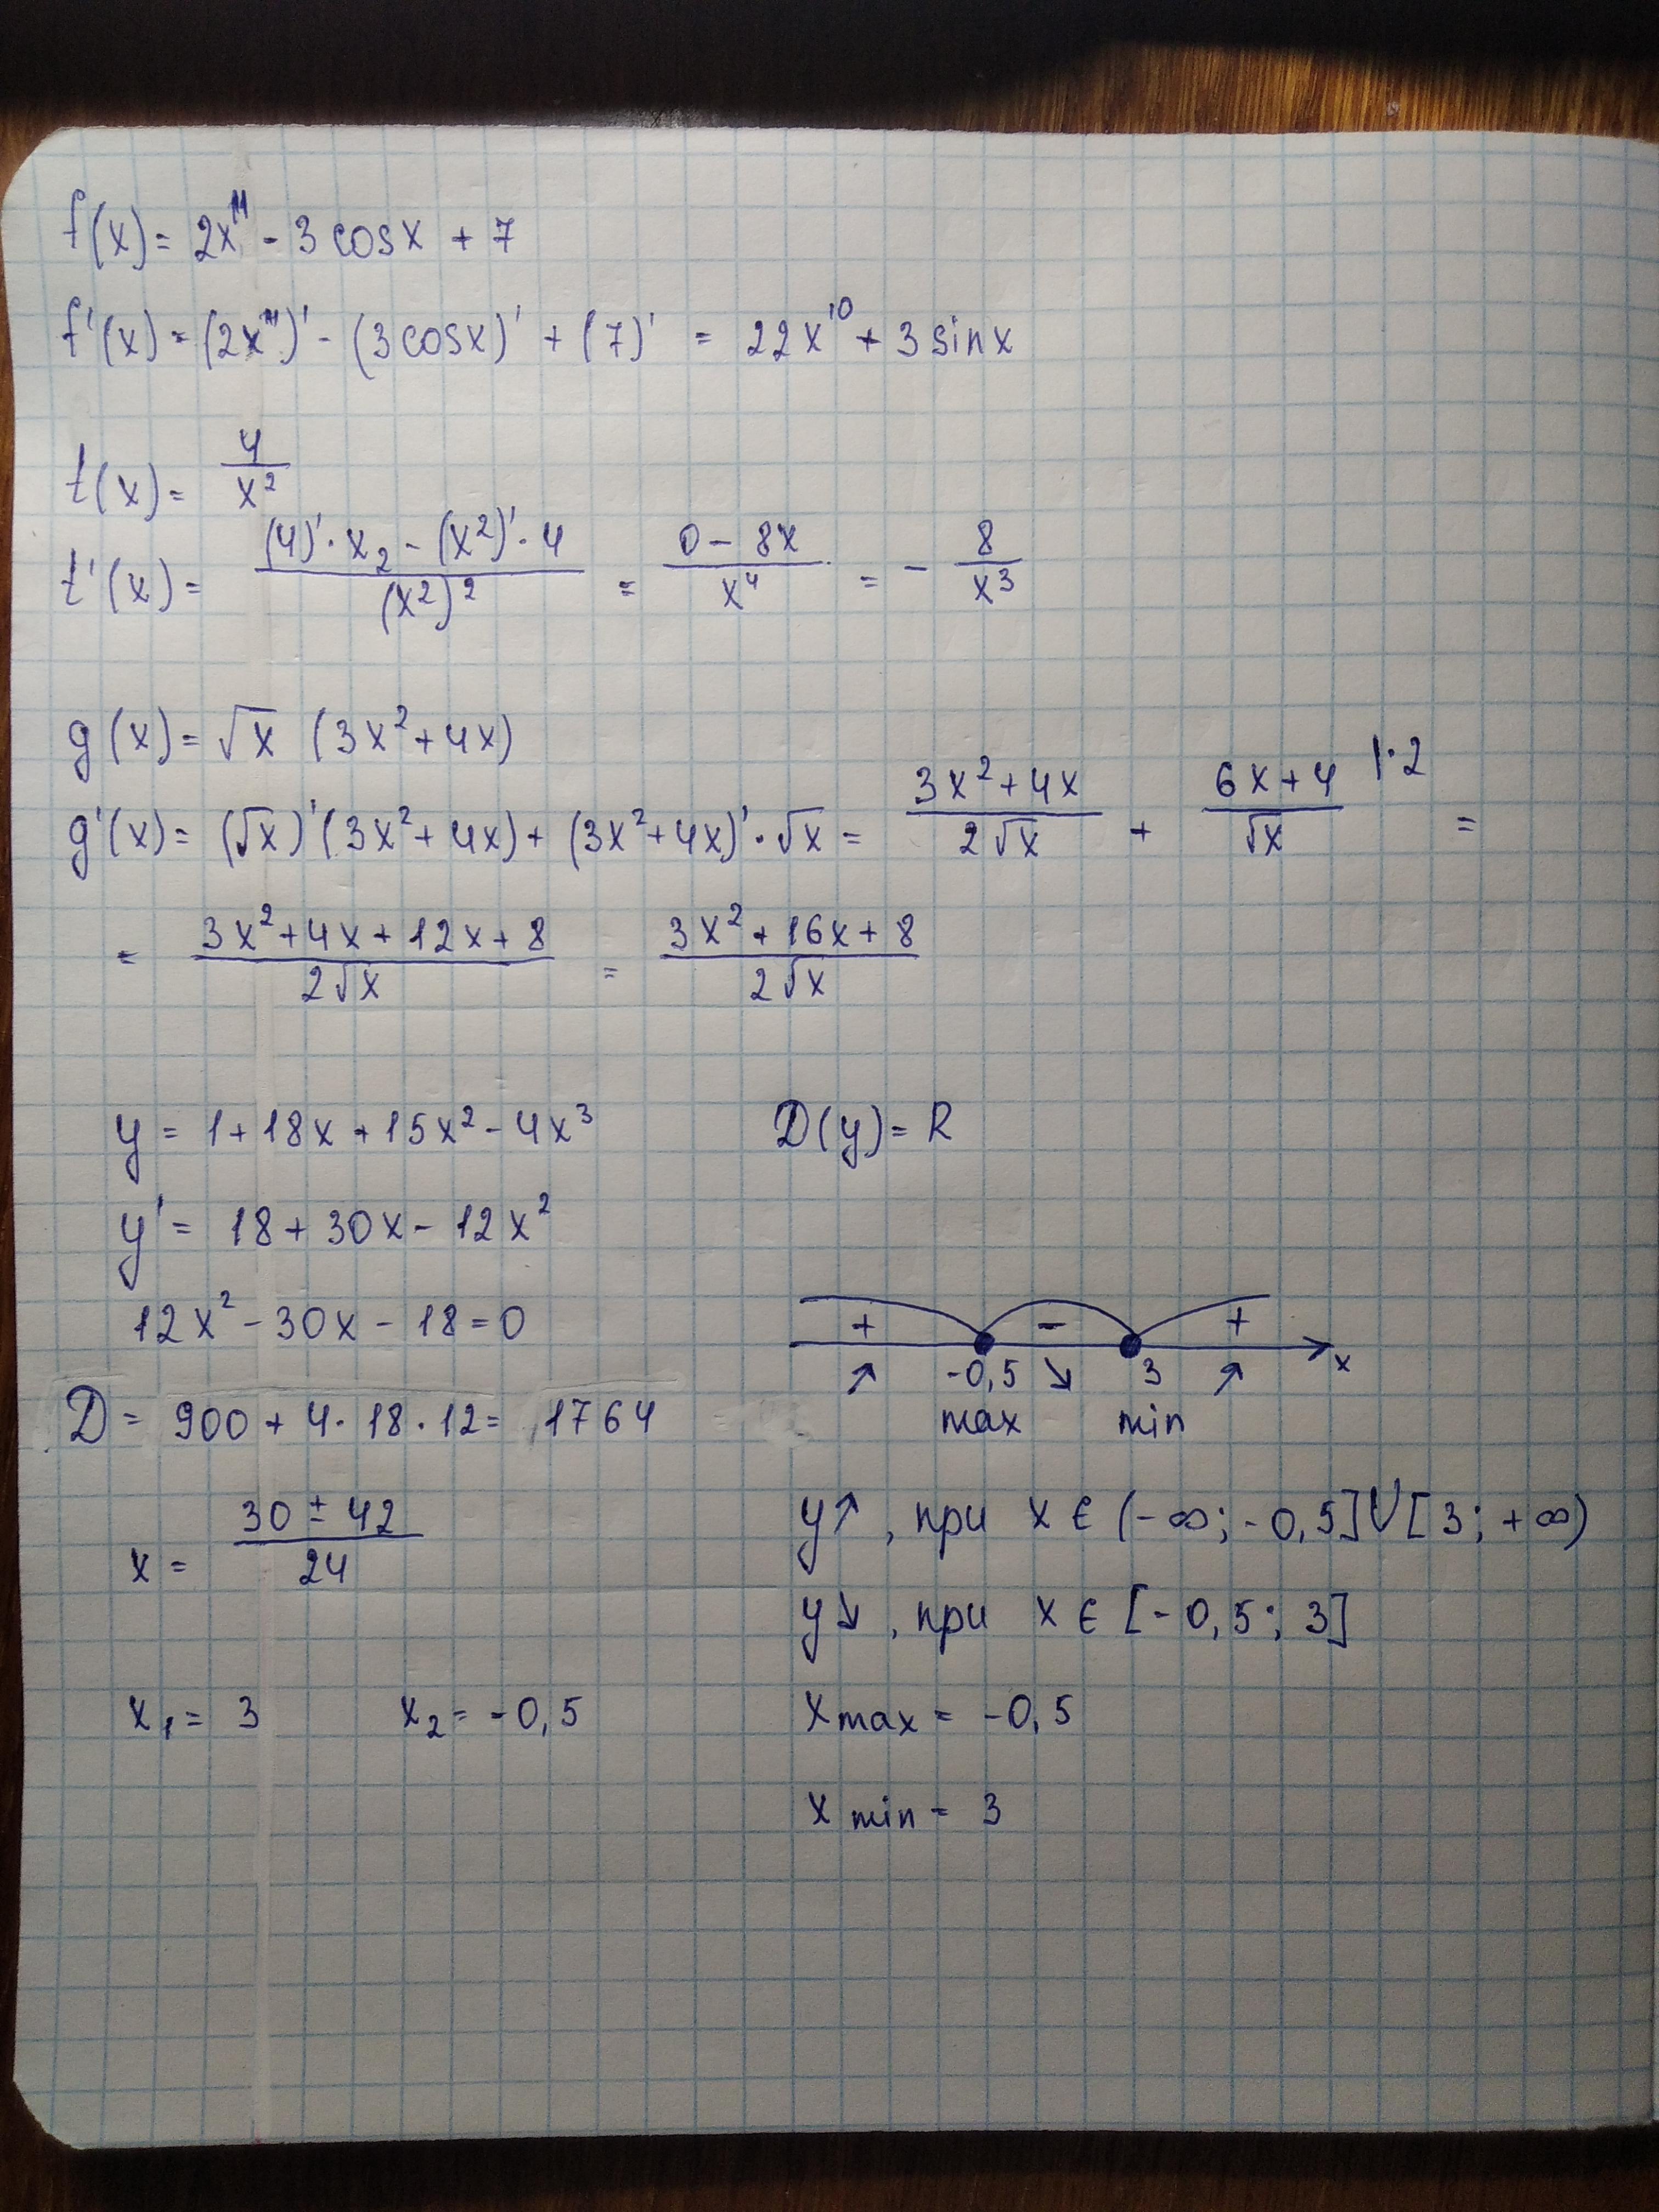 f(x) = 2x¹¹ - 3 cosx + 7
f'(x) = (2x¹¹)' - (3cosx)' + (7)' = 22x¹⁰ + 3 sinx
t(x) = 4/x²
t'(x) = ((4)'·x₂ - (x²)'·4)/(x²)² = (0 - 8x)/x⁴ = - 8/x³
g(x) = √x (3x² + 4x)
g'(x) = (√x)'(3x² + 4x) + (3x² + 4x)'·√x = (3x² + 4x)/(2√x) + (6x + 4)/√x |·2 =
= (3x² + 4x + 12x + 8)/(2√x) = (3x² + 16x + 8)/(2√x)
y = 1 + 18x + 15x² - 4x³
y' = 18 + 30x - 12x²
12x² - 30x - 18 = 0
D = 900 + 4·18·12 = 1764
x = (30 ± 42)/24
x₁ = 3 x₂ = -0,5
D(y) = R
+ - +
↗ -0,5 ↘ 3 ↗ x
max min
y↗, при x ∈ (-∞; -0,5]∪[3; +∞)
y↘, при x ∈ [-0,5; 3]
x max = -0,5
x min = 3